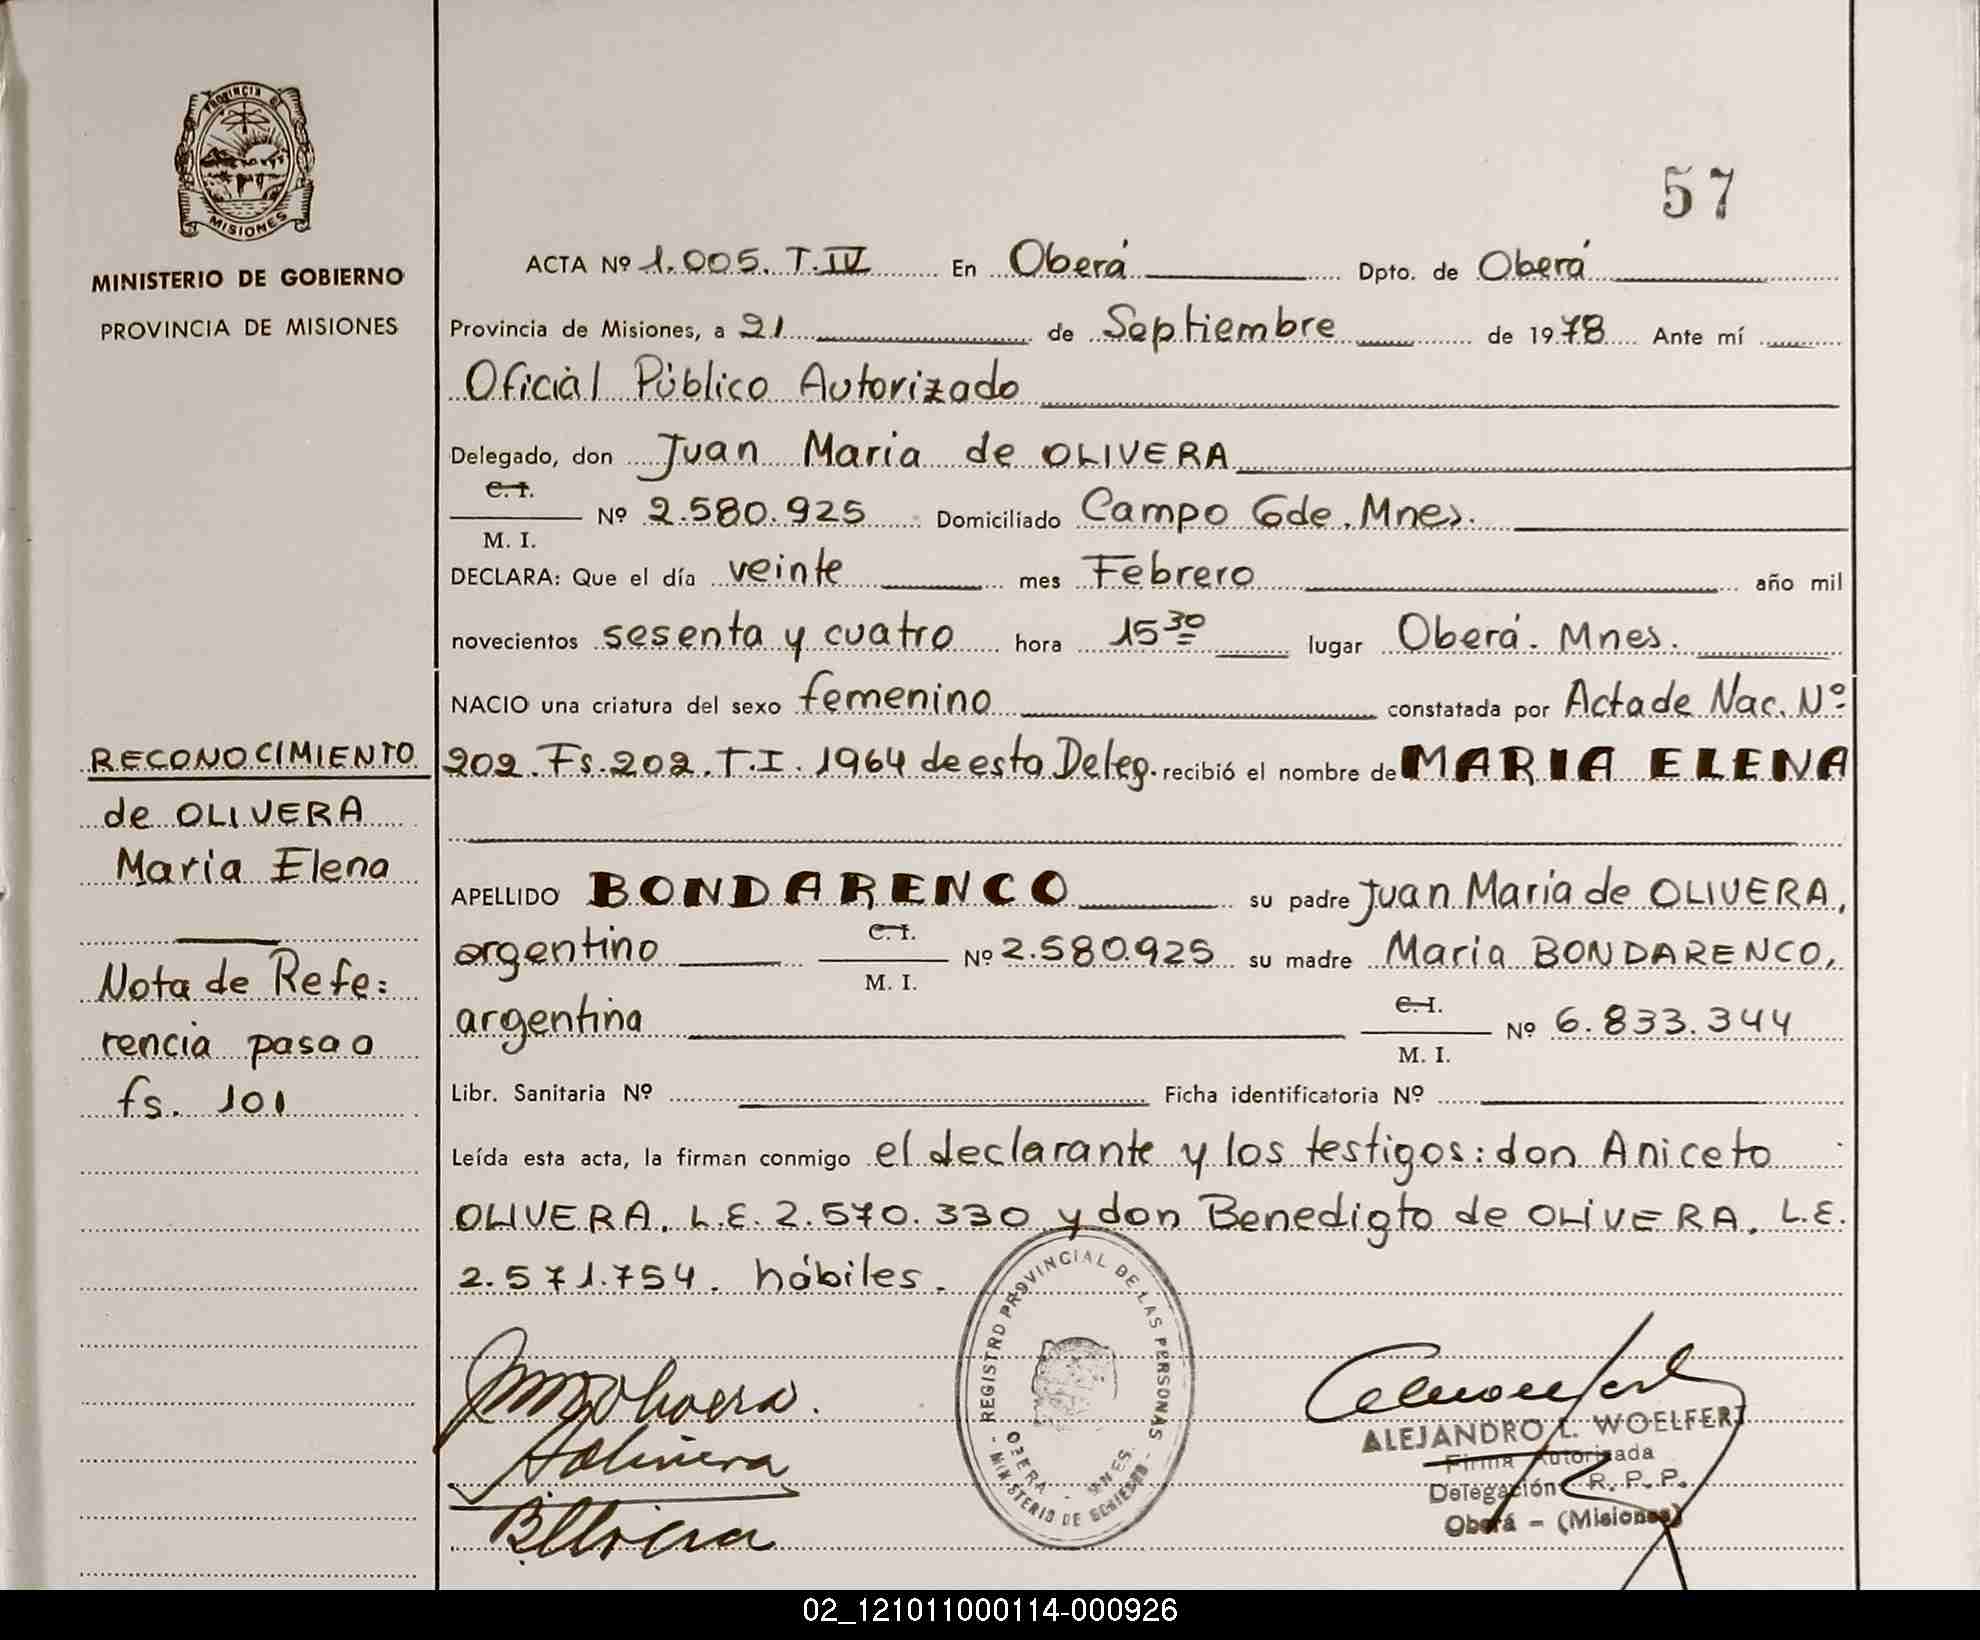 PROVINCIA DE
MISIONES
MINISTERIO DE GOBIERNO
PROVINCIA DE MISIONES
RECONOCIMIENTO
de OLIVERA
Maria Elena
Nota de Refe=
rencia pasa a
fs. 101
57
ACTA Nº 1.005. T. IV En Oberá Dpto. de Oberá
Provincia de Misiones, a 21 de Septiembre de 1978 Ante mí
Oficial Público Autorizado
Delegado, don Juan Maria de OLIVERA
C. I.
M. I. Nº 2.580.925 Domiciliado Campo Gde. Mnes.
DECLARA: Que el día veinte mes Febrero año mil
novecientos sesenta y cuatro hora 15 30 lugar Oberá. Mnes.
NACIO una criatura del sexo femenino constatada por Acta de Nac. Nº
202. Fs. 202. T. I. 1964 de esta Deleg. recibió el nombre de MARIA ELENA
APELLIDO BONDARENCO su padre Juan Maria de OLIVERA,
argentino C. I. M. I. Nº 2.580.925 su madre Maria BONDARENCO,
argentina C. I. M. I. Nº 6.833.344
Libr. Sanitaria Nº Ficha identificatoria Nº
Leída esta acta, la firman conmigo el declarante y los testigos: don Aniceto
OLIVERA, L.E. 2.570.330 y don Benedigto de OLIVERA, L.E.
2.571.754. hábiles.
REGISTRO PROVINCIAL DE LAS PERSONAS
OBERA - MNES.
- MINISTERIO DE GOBIERNO -
JM Olivera.
A Olivera
B Olivera
ALEJANDRO L. WOELFERT
Firma Autorizada
Delegación R. P. P.
Oberá - (Misiones)
02_121011000114-000926